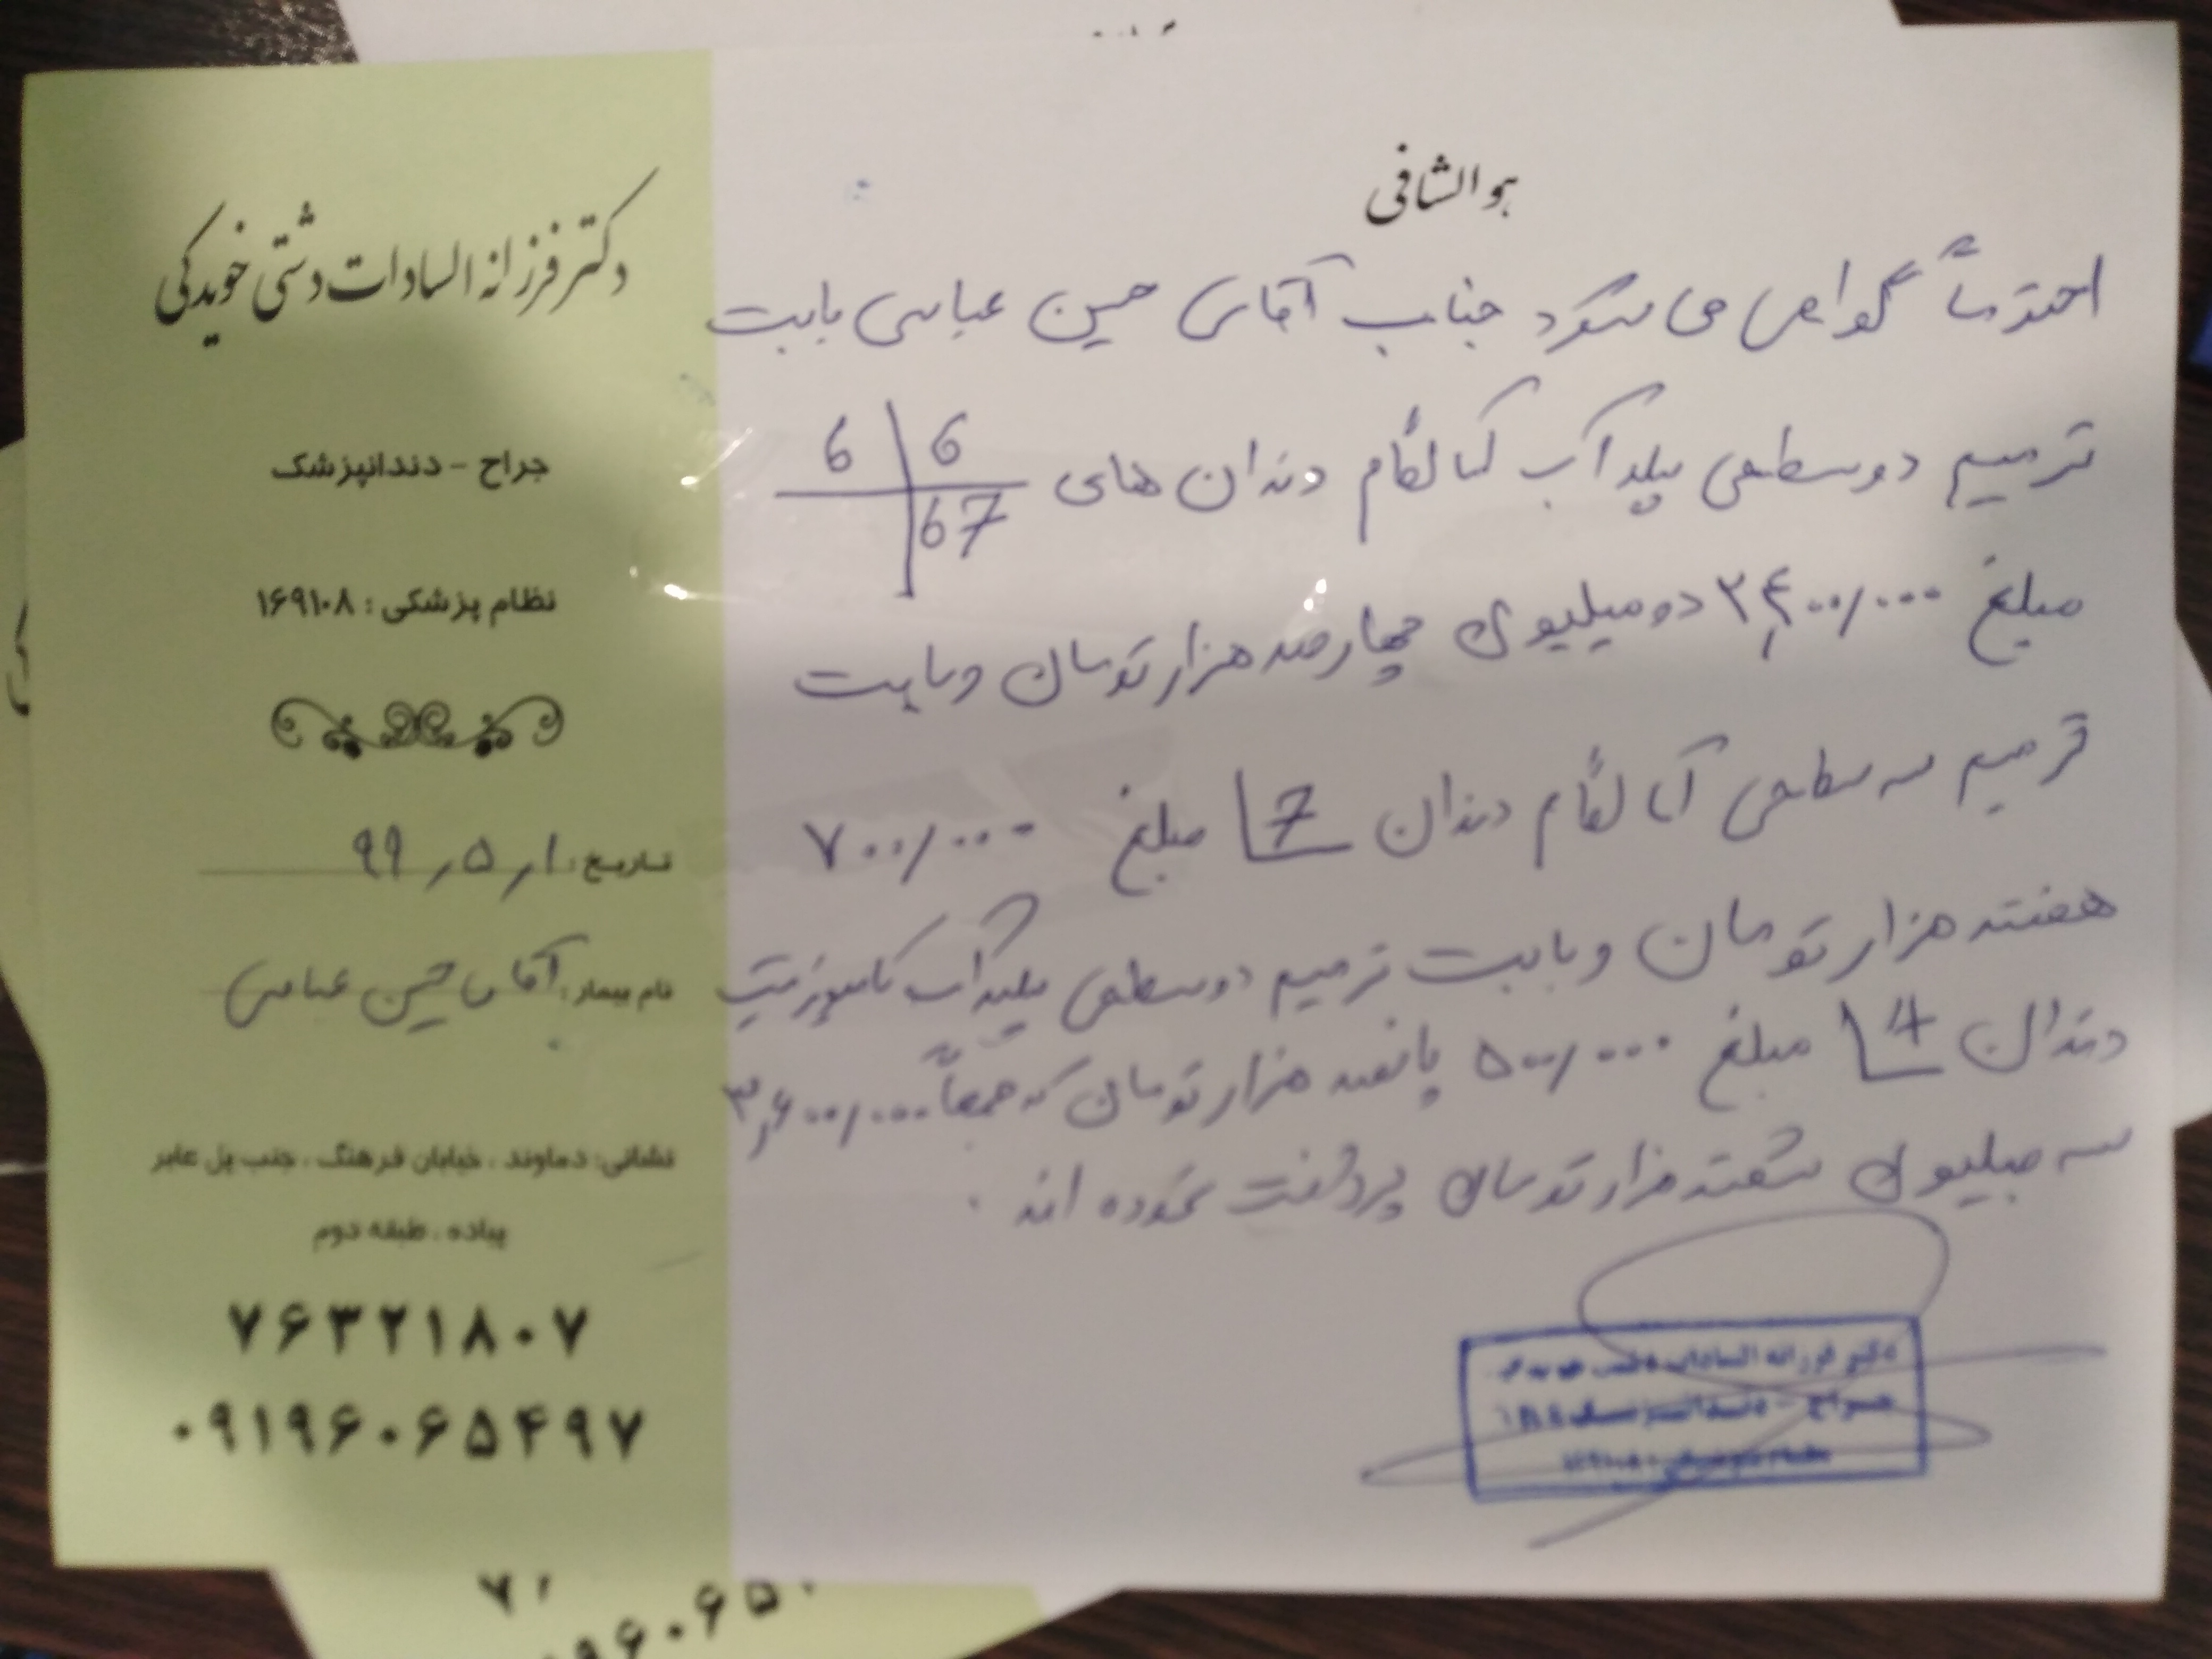 هو الشافی
احتراماً گواهی می شود جناب آقای حسین عباسی بابت
ترمیم دوسطحی بیلدآپ آمالگام دندان های 6 6 67
مبلغ ۲,۴۰۰,۰۰۰ دو میلیون چهارصد هزار تومان و بابت
ترمیم سه سطحی آمالگام دندان 7 مبلغ ۷۰۰,۰۰۰
هفتصد هزار تومان و بابت ترمیم دوسطحی بیلدآپ کامپوزیت
دندان 4 مبلغ ۵۰۰,۰۰۰ پانصد هزار تومان که جمعاً ۳,۶۰۰,۰۰۰
سه میلیون ششصد هزار تومان پرداخت نموده اند.
دکتر فرزانه السادات دشتی خویدکی
جراح - دندانپزشک
نظام پزشکی : ۱۶۹۱۰۸
تاریخ: ۱ ,۵ ,۹۹
نام بیمار: آقای حسین عباسی
نشانی: دماوند، خیابان فرهنگ، جنب پل عابر
پیاده، طبقه دوم
۷۶۳۲۱۸۰۷
۰۹۱۹۶۰۶۵۴۹۷